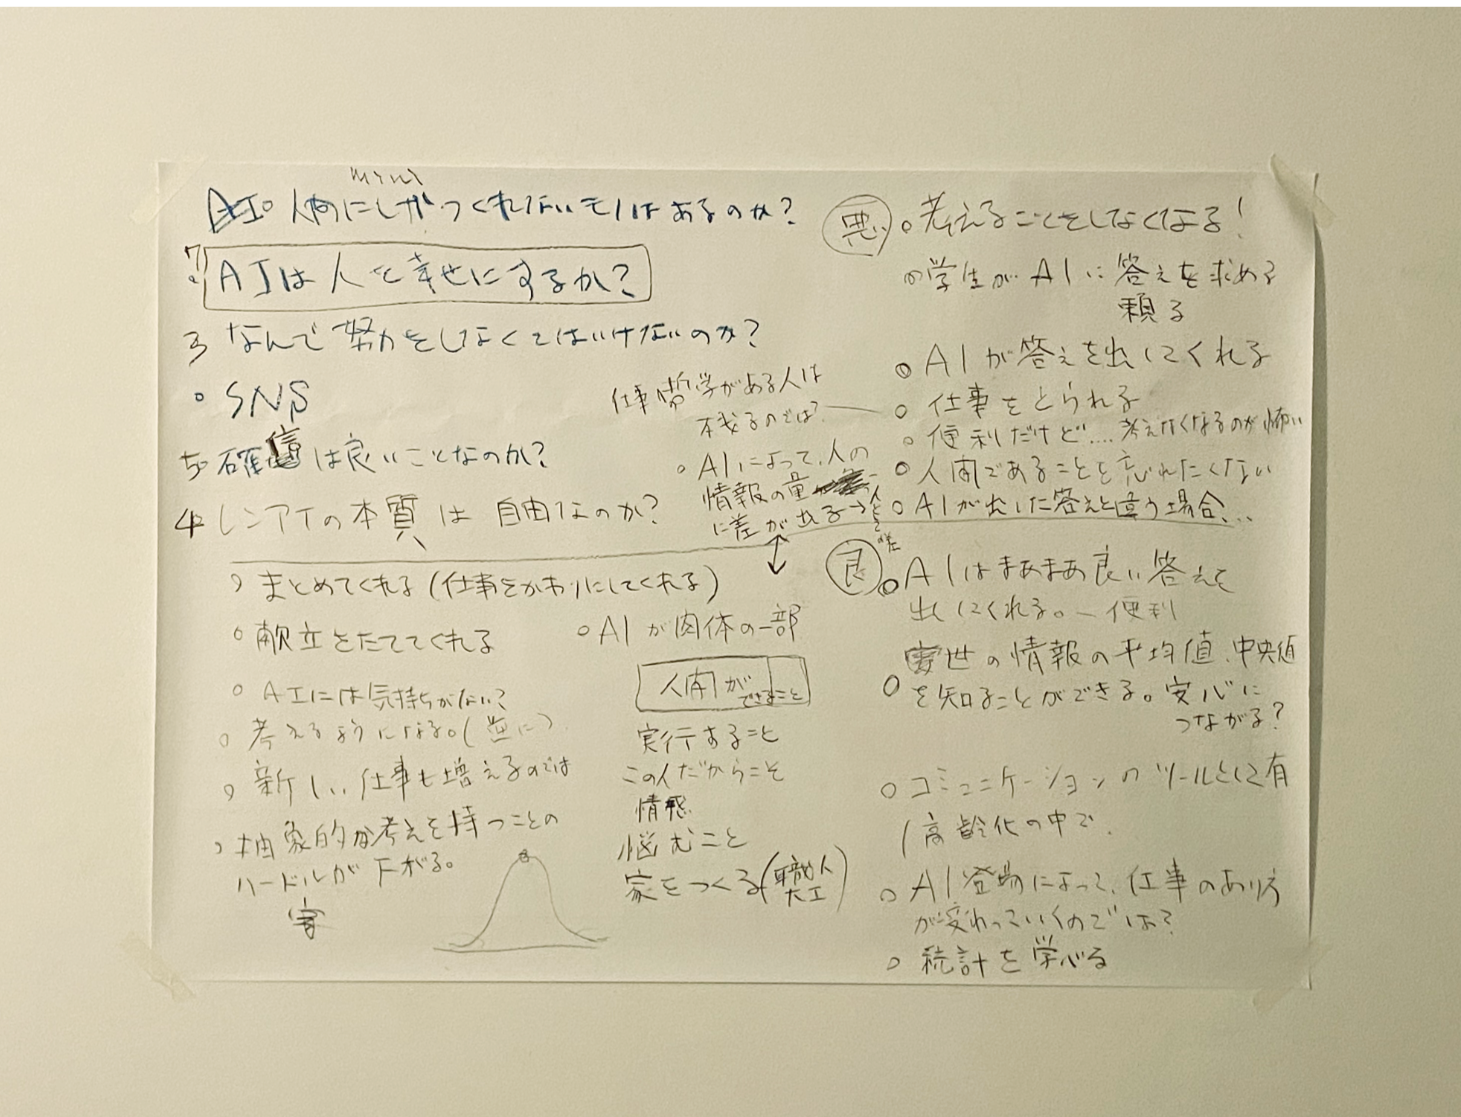 人間にしかつくれないモノはあるのか?
7
AIは人を幸せにするか?
3 なんで努力をしなくてはいけないのか?
○ SNS
5 確信は良いことなのか?
4 レンアイの本質は自由なのか?
仕事哲学がある人は
残るのでは?
○ AIによって、人の
情報の量
に差が出る→
悪
○ 考えることをしなくなる!
○ 学生が AIに答えを求める
頼る
○ AIが答えを出してくれる
○ 仕事をとられる
○ 便利だけど…. 考えなくなるのが怖い
○ 人間であることを忘れたくない
○ AIが出した答えと違う場合、…
○ まとめてくれる(仕事をかわりにしてくれる)
○ 献立をたててくれる
○ AIには気持ちがない?
○ 考えるようになる。(逆に)
○ 新しい仕事も増えるのでは
○ 抽象的な考えを持つことの
ハードルが下がる。
○ AIが肉体の一部
人間ができること
実行すること
この人だからこそ
情感
悩むこと
家をつくる(職人 大工)
良
○ AIはまあまあ良い答えを
出してくれる。― 便利
世の情報の平均値、中央値
○ を知ることができる。安心に
つながる?
○ コミュニケーションのツールとして有
高齢化の中で、
○ AI登場によって、仕事のあり方
が変わっていくのでは?
○ 統計を学べる